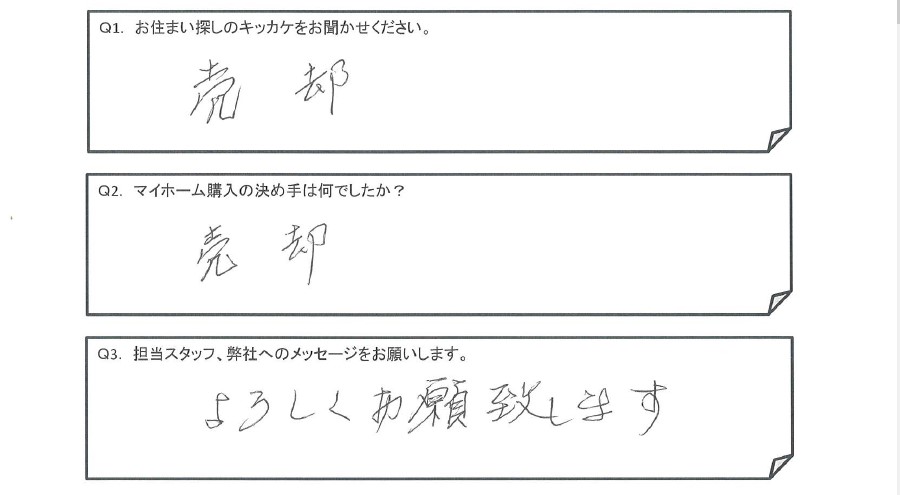 Q1. お住まい探しのキッカケをお聞かせください。
売 却
Q2. マイホーム購入の決め手は何でしたか？
売 却
Q3. 担当スタッフ、弊社へのメッセージをお願いします。
よろしくお願致します